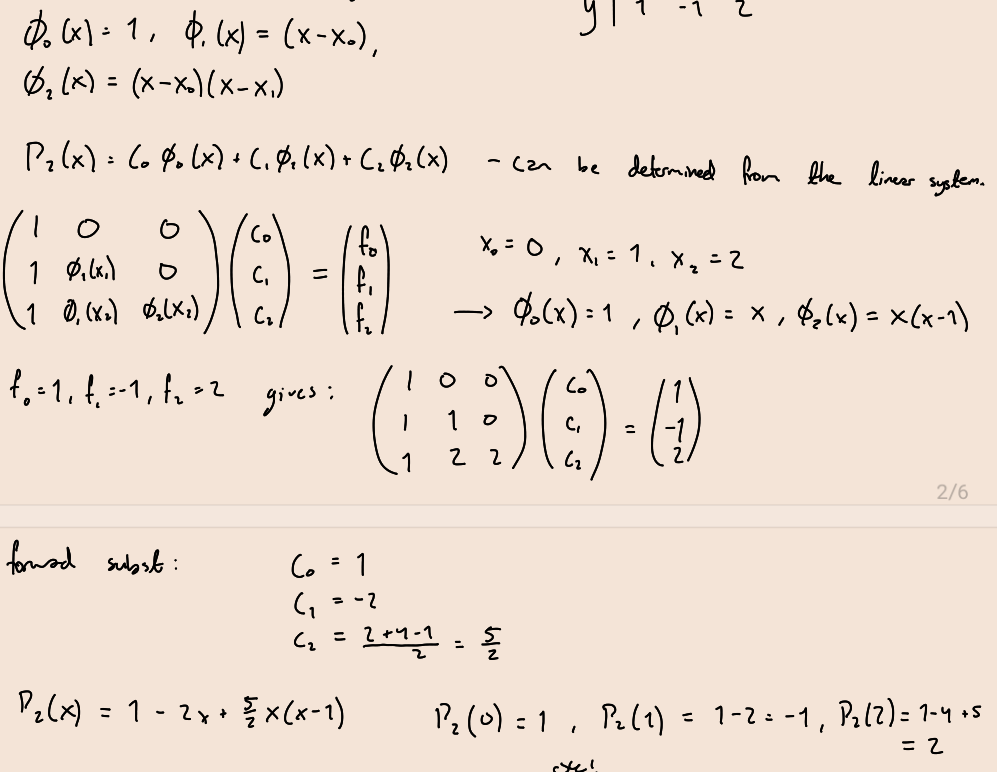 y | 1 -1 2
ϕ₀(x) = 1, ϕ₁(x) = (x-x₀),
ϕ₂(x) = (x-x₀)(x-x₁)
P₂(x) = C₀ ϕ₀(x) + C₁ ϕ₁(x) + C₂ ϕ₂(x) - can be determined from the linear system.
(1 0 0; 1 ϕ₁(x₁) 0; 1 ϕ₁(x₂) ϕ₂(x₂)) (C₀; C₁; C₂) = (f₀; f₁; f₂)
x₀ = 0, x₁ = 1, x₂ = 2
→ ϕ₀(x) = 1, ϕ₁(x) = x, ϕ₂(x) = x(x-1)
f₀ = 1, f₁ = -1, f₂ = 2 gives: (1 0 0; 1 1 0; 1 2 2) (C₀; C₁; C₂) = (1; -1; 2)
2/6
forward subst:
C₀ = 1
C₁ = -2
C₂ = (2+4-1)/2 = 5/2
P₂(x) = 1 - 2x + 5/2 x(x-1) P₂(0) = 1, P₂(1) = 1-2 = -1, P₂(2) = 1-4+5
= 2